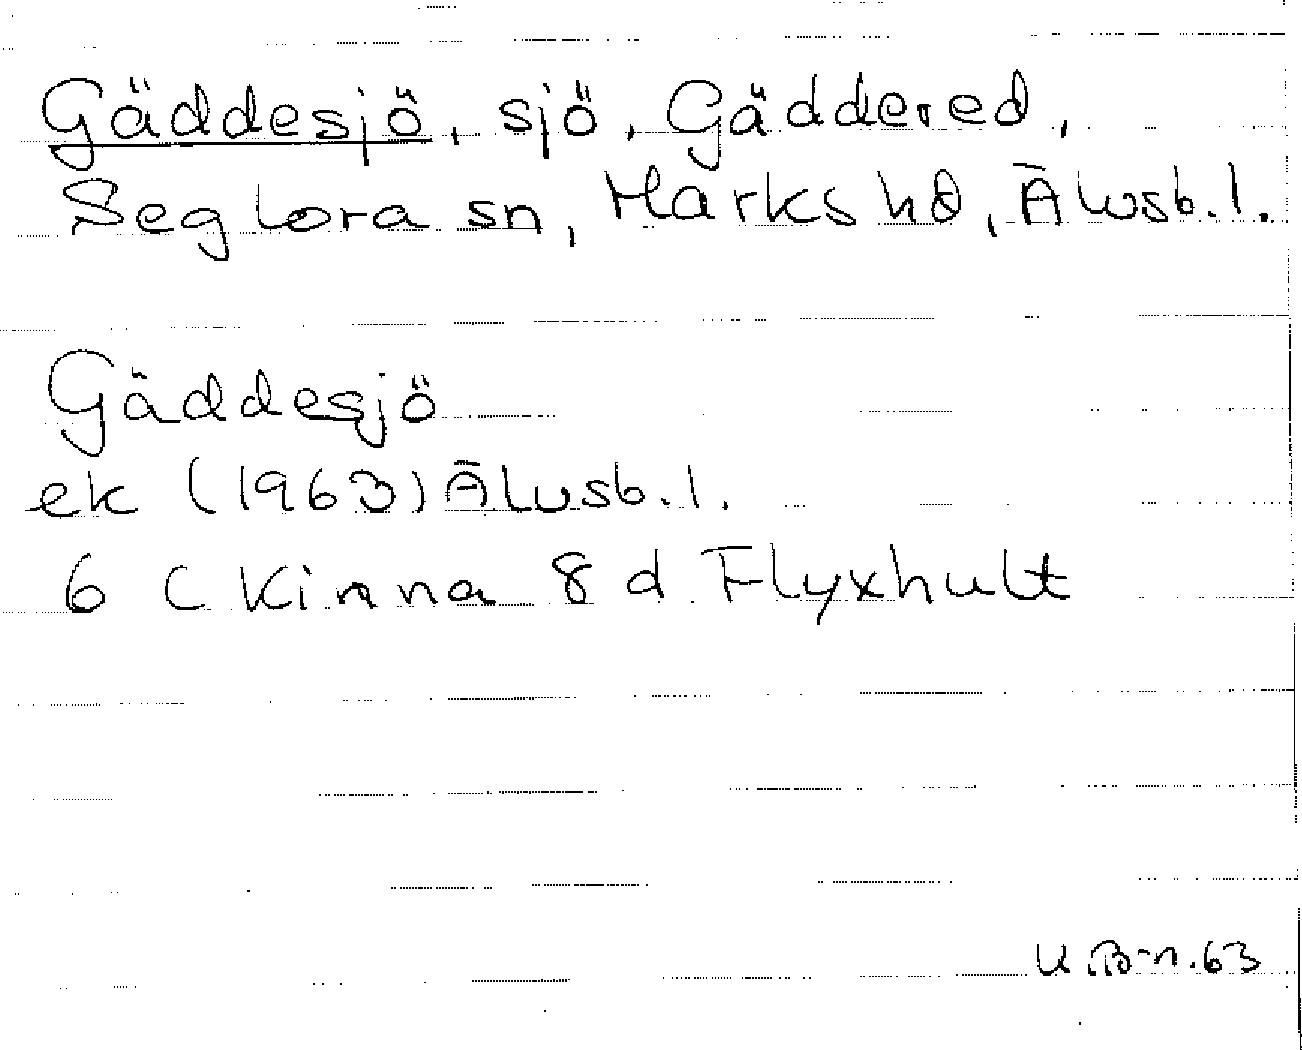 Gäddesjö, sjö, Gäddered,
Seglora sn, Marks hd, Älvsb. l.
Gäddesjö
ek (1963) Älvsb. l.
6 C Kinna 8 d Flyxhult
U.B-n.63